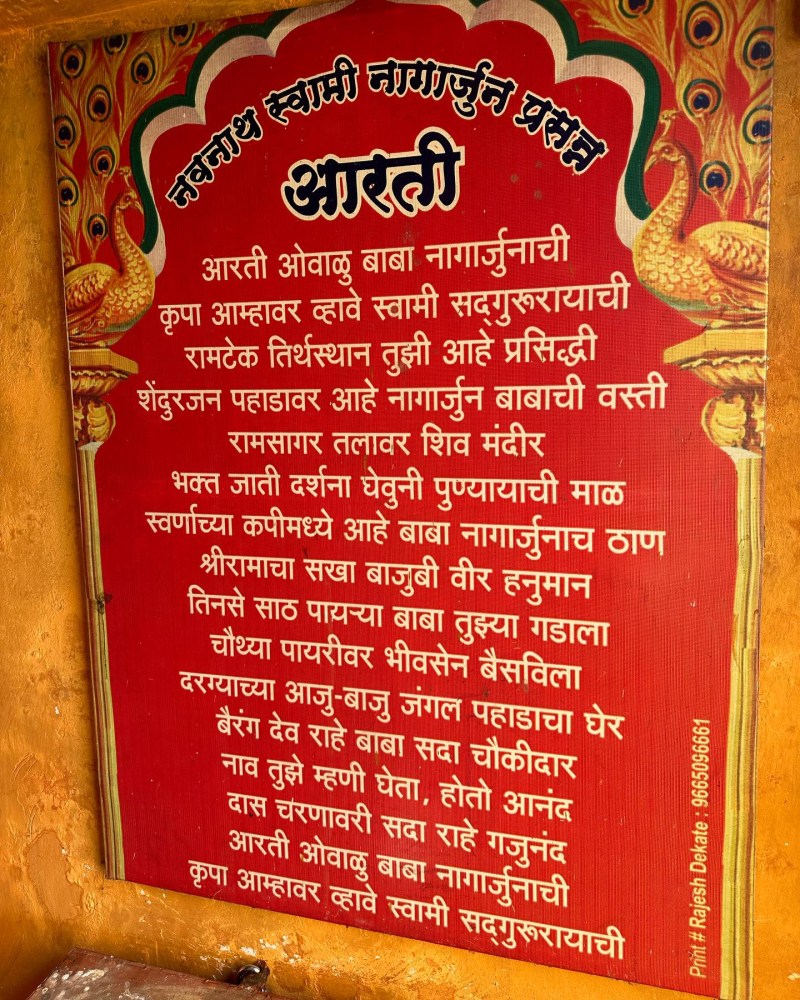 नवनाथ स्वामी नागार्जुन प्रसन्न
आरती
आरती ओवाळु बाबा नागार्जुनाची
कृपा आम्हावर व्हावे स्वामी सद्गुरूरायाची
रामटेक तिर्थस्थान तुझी आहे प्रसिद्धी
शेंदुरजन पहाडावर आहे नागार्जुन बाबाची वस्ती
रामसागर तलावर शिव मंदीर
भक्त जाती दर्शना घेवुनी पुण्यायाची माळ
स्वर्णाच्या कपीमध्ये आहे बाबा नागार्जुनाच ठाण
श्रीरामाचा सखा बाजुबी वीर हनुमान
तिनसे साठ पायऱ्या बाबा तुझ्या गडाला
चौथ्या पायरीवर भीवसेन बैसविला
दरग्याच्या आजु-बाजु जंगल पहाडाचा घेर
बैरंग देव राहे बाबा सदा चौकीदार
नाव तुझे म्हणी घेता, होतो आनंद
दास चरणावरी सदा राहे गजुनंद
आरती ओवाळु बाबा नागार्जुनाची
कृपा आम्हावर व्हावे स्वामी सद्गुरूरायाची
Print # Rajesh Dekate : 9665096661